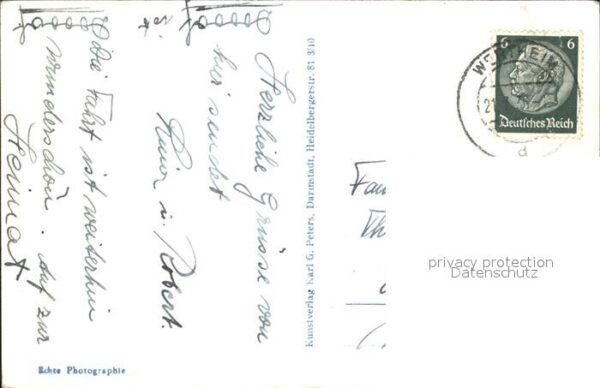 Herzliche Grüsse von
hier sendet
u. Robert.
Die Fahrt ist weiterhin
wunderschön. Auf zur
Heimat
Echte Photographie
Kunstverlag Karl G. Peters, Darmstadt, Heidelbergerstr. 81 3/10
6 6
Deutsches Reich
d
privacy protection
Datenschutz